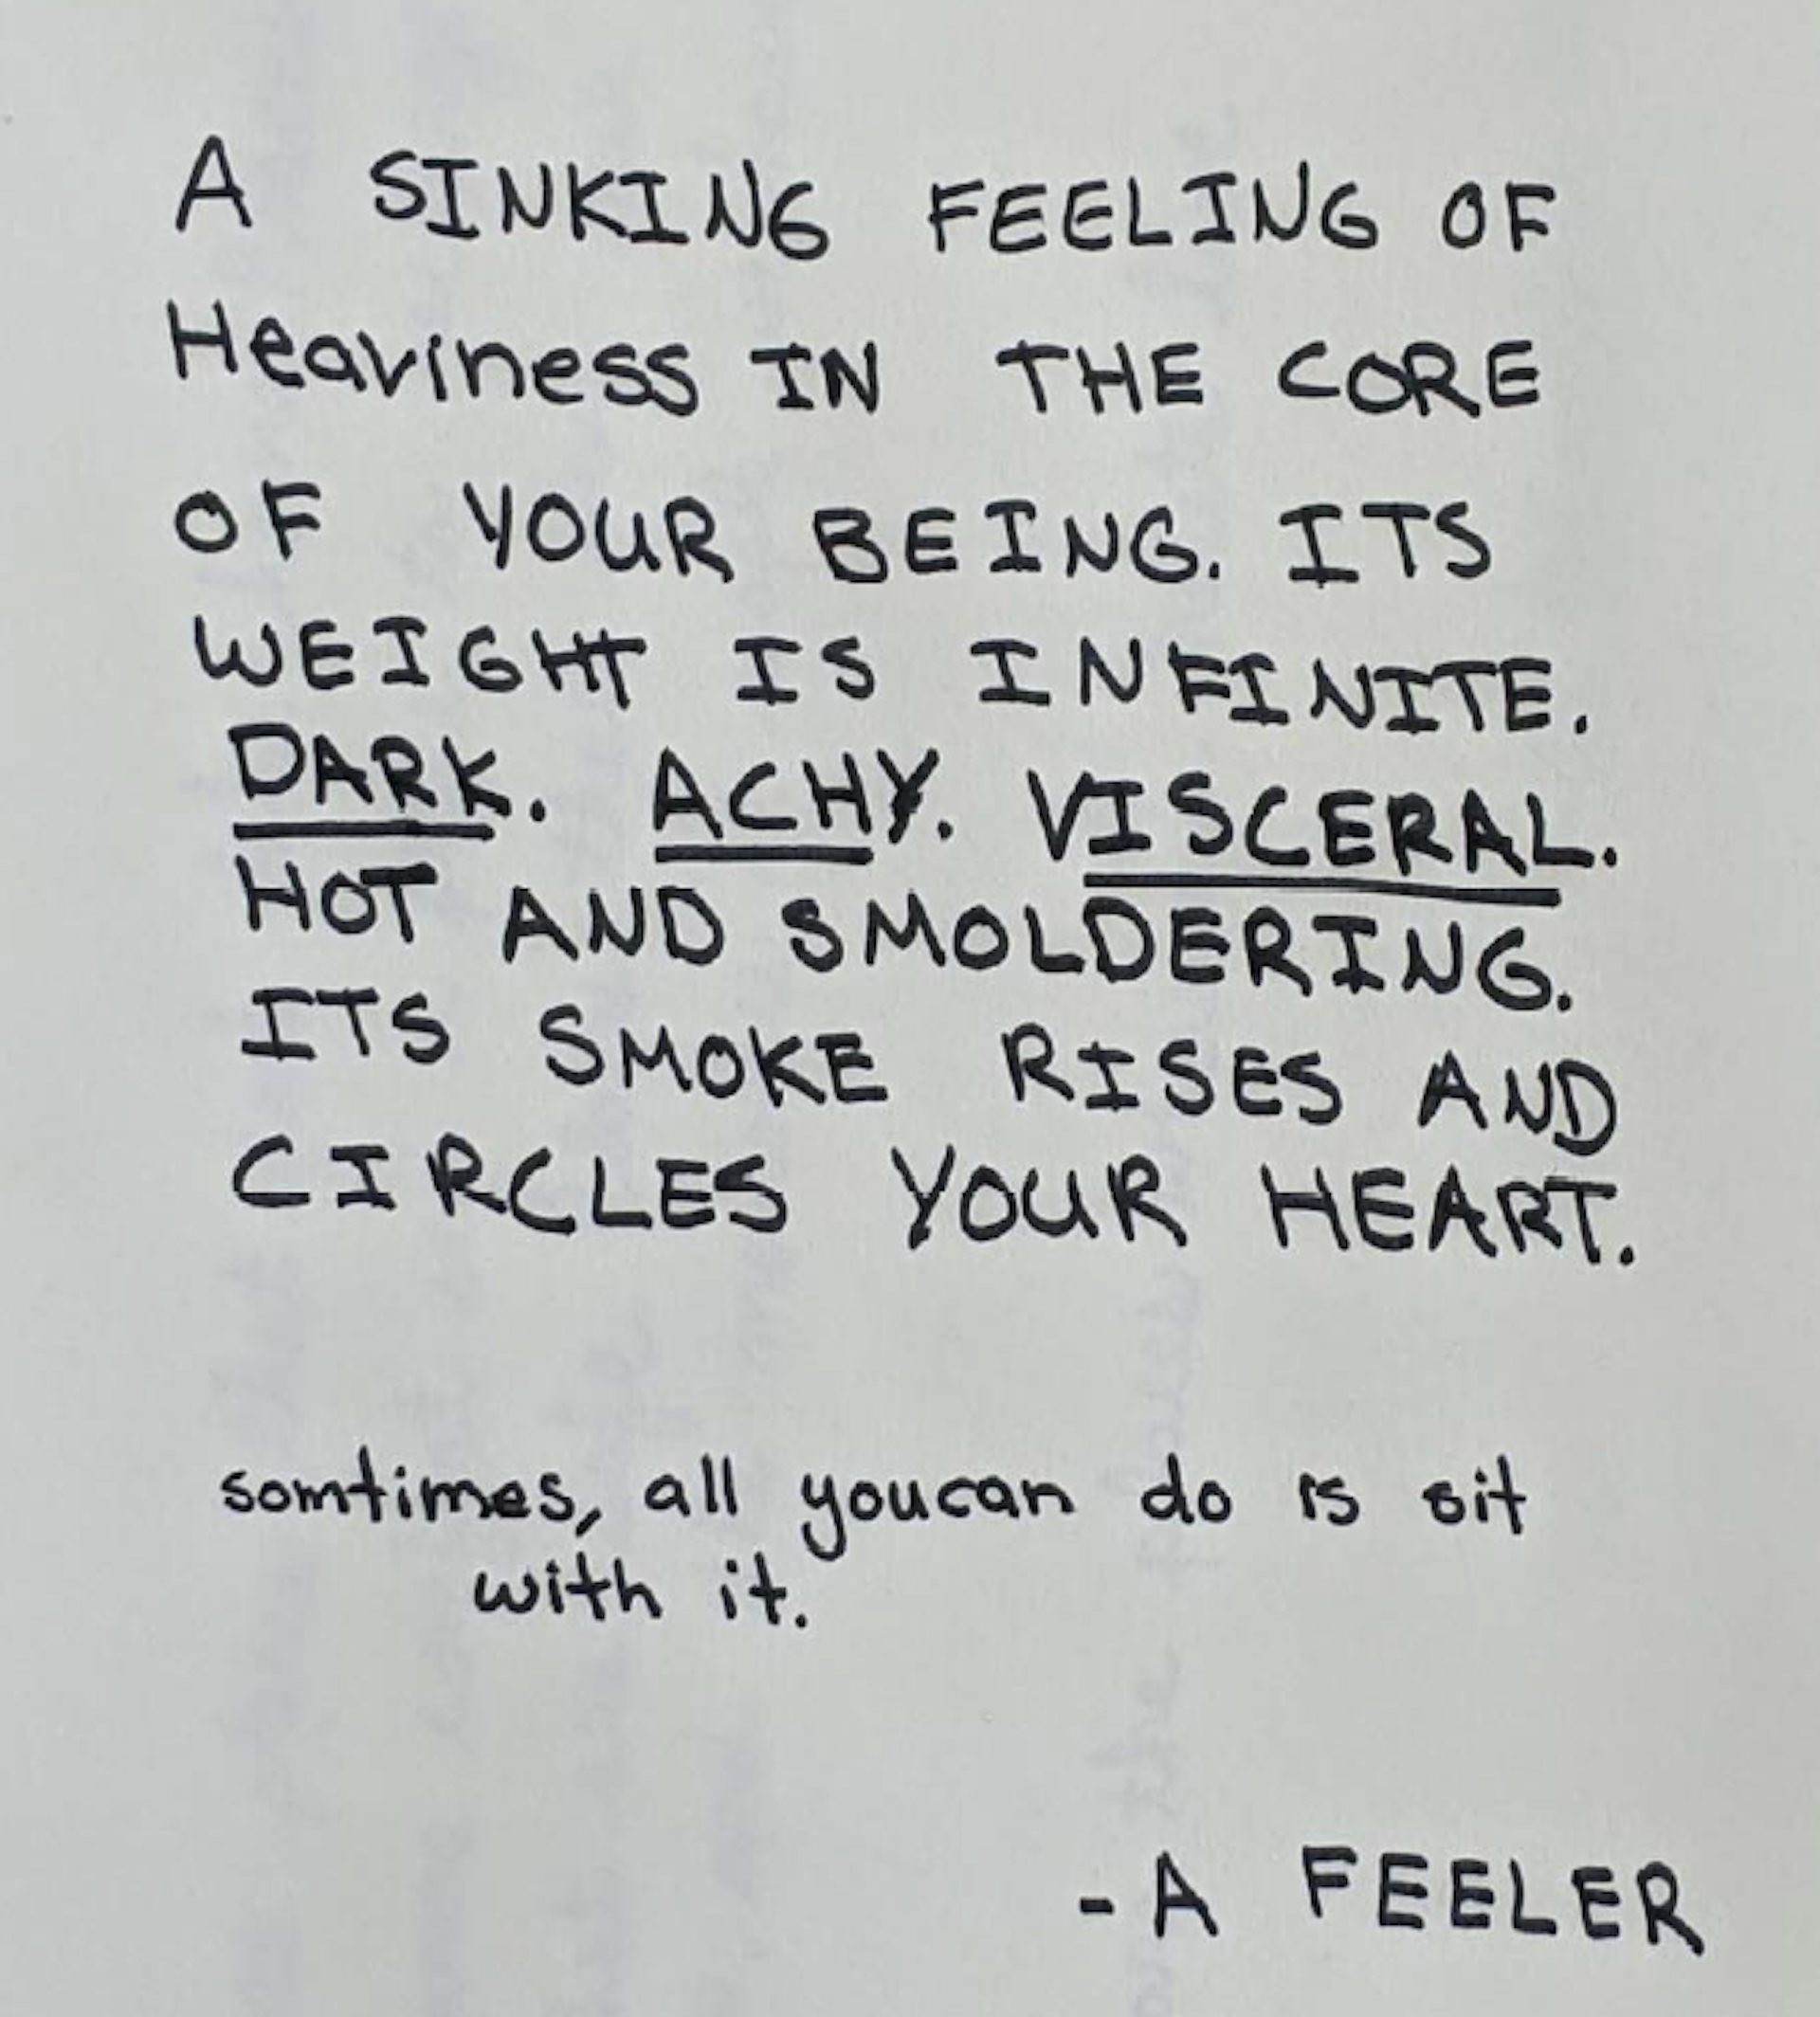 A SINKING FEELING OF
Heaviness IN THE CORE
OF YOUR BEING. ITS
WEIGHT IS INFINITE.
DARK. ACHY. VISCERAL.
HOT AND SMOLDERING.
ITS SMOKE RISES AND
CIRCLES YOUR HEART.
somtimes, all youcan do is sit
with it.
- A FEELER